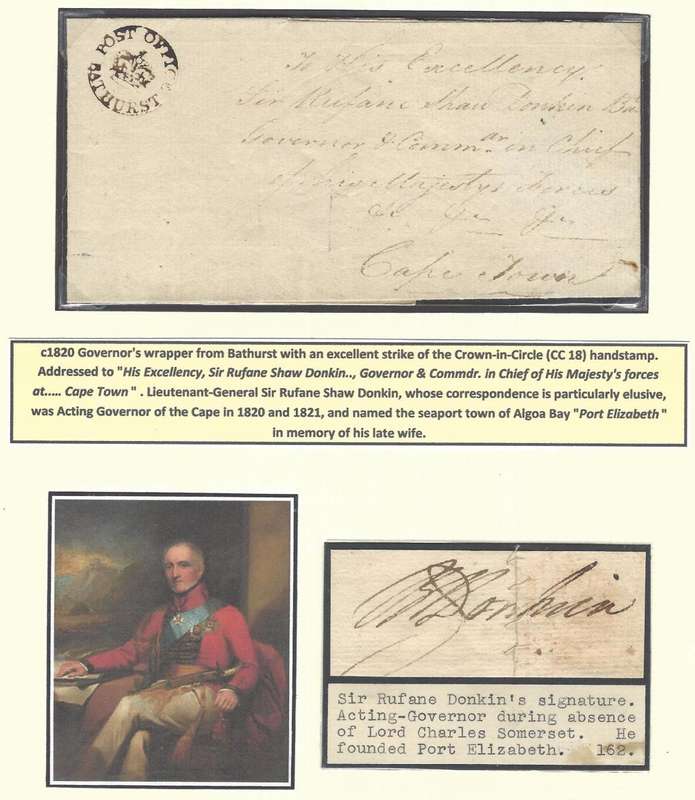 POST OFFICE
BATHURST
To His Excellency
Sir Rufane Shaw Donkin Ba
Governor & Commdr in Chief
of his Majestys Forces
&c &c &c
Cape Town
c1820 Governor's wrapper from Bathurst with an excellent strike of the Crown-in-Circle (CC 18) handstamp.
Addressed to "His Excellency, Sir Rufane Shaw Donkin.., Governor & Commdr. in Chief of His Majesty's forces
at..... Cape Town" . Lieutenant-General Sir Rufane Shaw Donkin, whose correspondence is particularly elusive,
was Acting Governor of the Cape in 1820 and 1821, and named the seaport town of Algoa Bay "Port Elizabeth"
in memory of his late wife.
Donkin
Sir Rufane Donkin's signature.
Acting-Governor during absence
of Lord Charles Somerset. He
founded Port Elizabeth. 162.